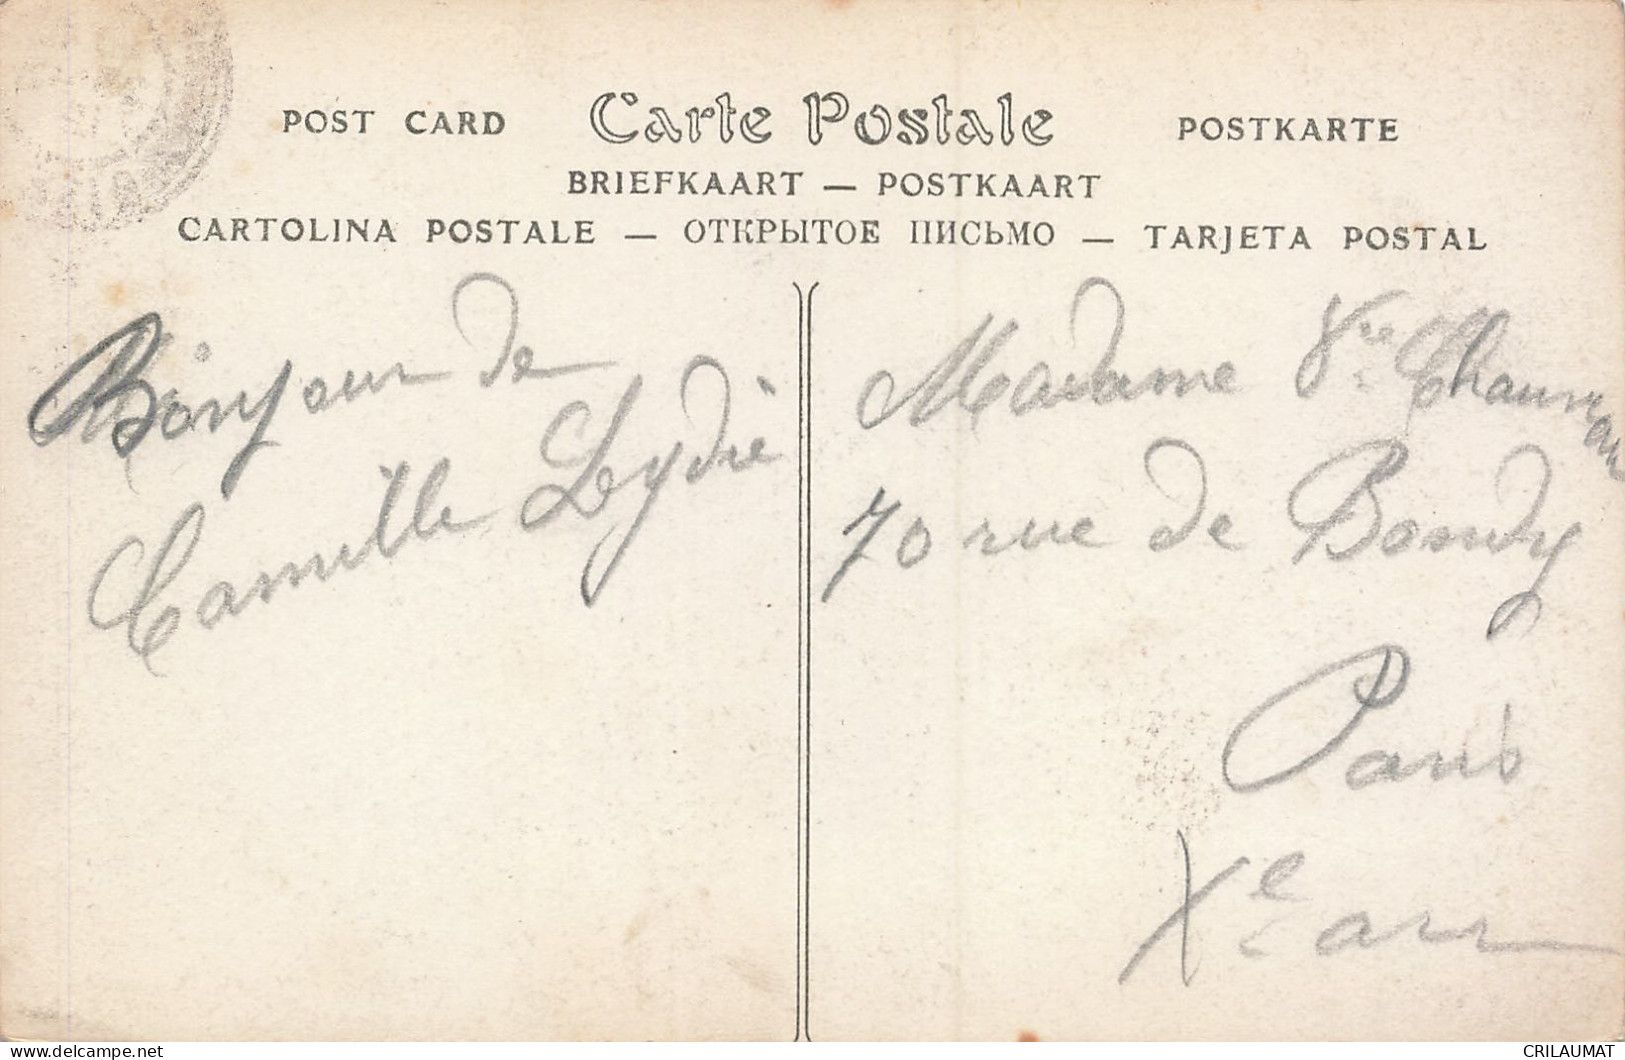 POST CARD Carte Postale POSTKARTE
BRIEFKAART — POSTKAART
CARTOLINA POSTALE — ОТКРЫТОЕ ПИСЬМО — TARJETA POSTAL
Bonjour de
Camille Lydie
Madame Vve
70 rue de Bondy
Paris
Xe arr
CRILAUMAT